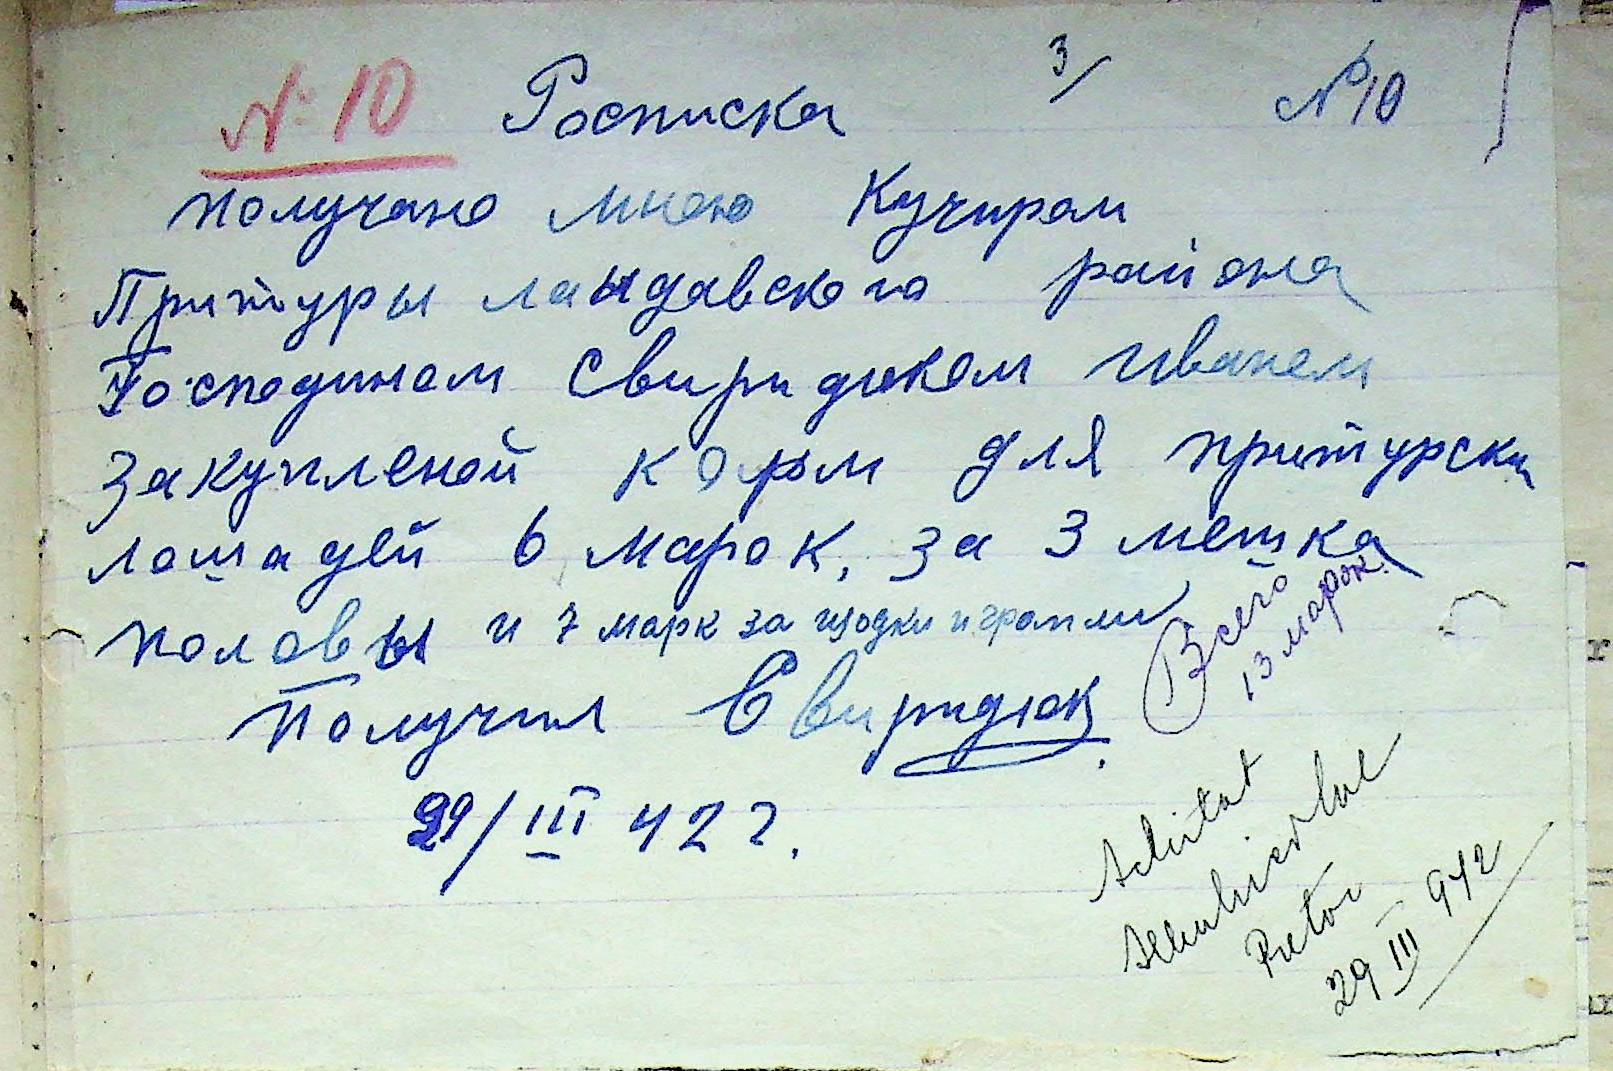 № 10 Росписка 3/ № 10
получано мною Кучиром
Притуры ландавского района
Господином Свиридюком Иваном
закупленой корм для притурски
лошадей 6 марок, за 3 мешка
половы и 7 марк за щодки и грапли
Всего
13 марок.
Получил Свиридюк
29/III 42 г.
Achitat
Pretor
29 III 942